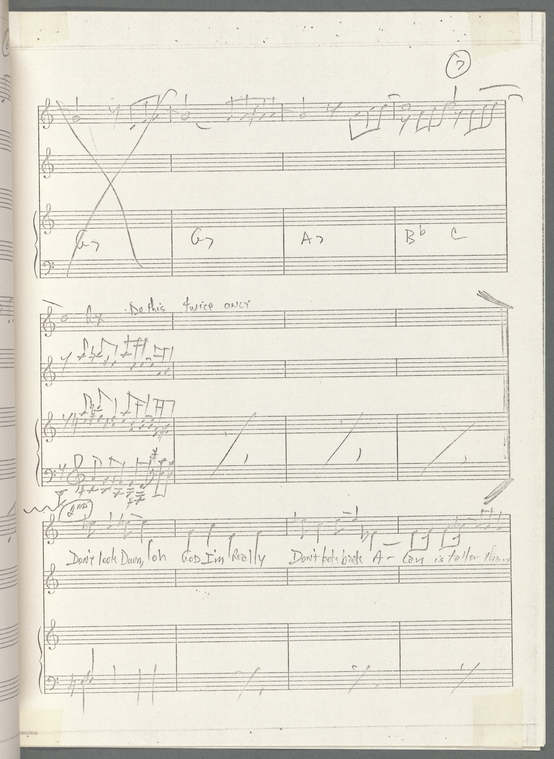 7
G7 G7 A7 Bb C
Do this twice only
2nd
Don't look Down, oh God I'm Really Don't look back A- Can is taller than